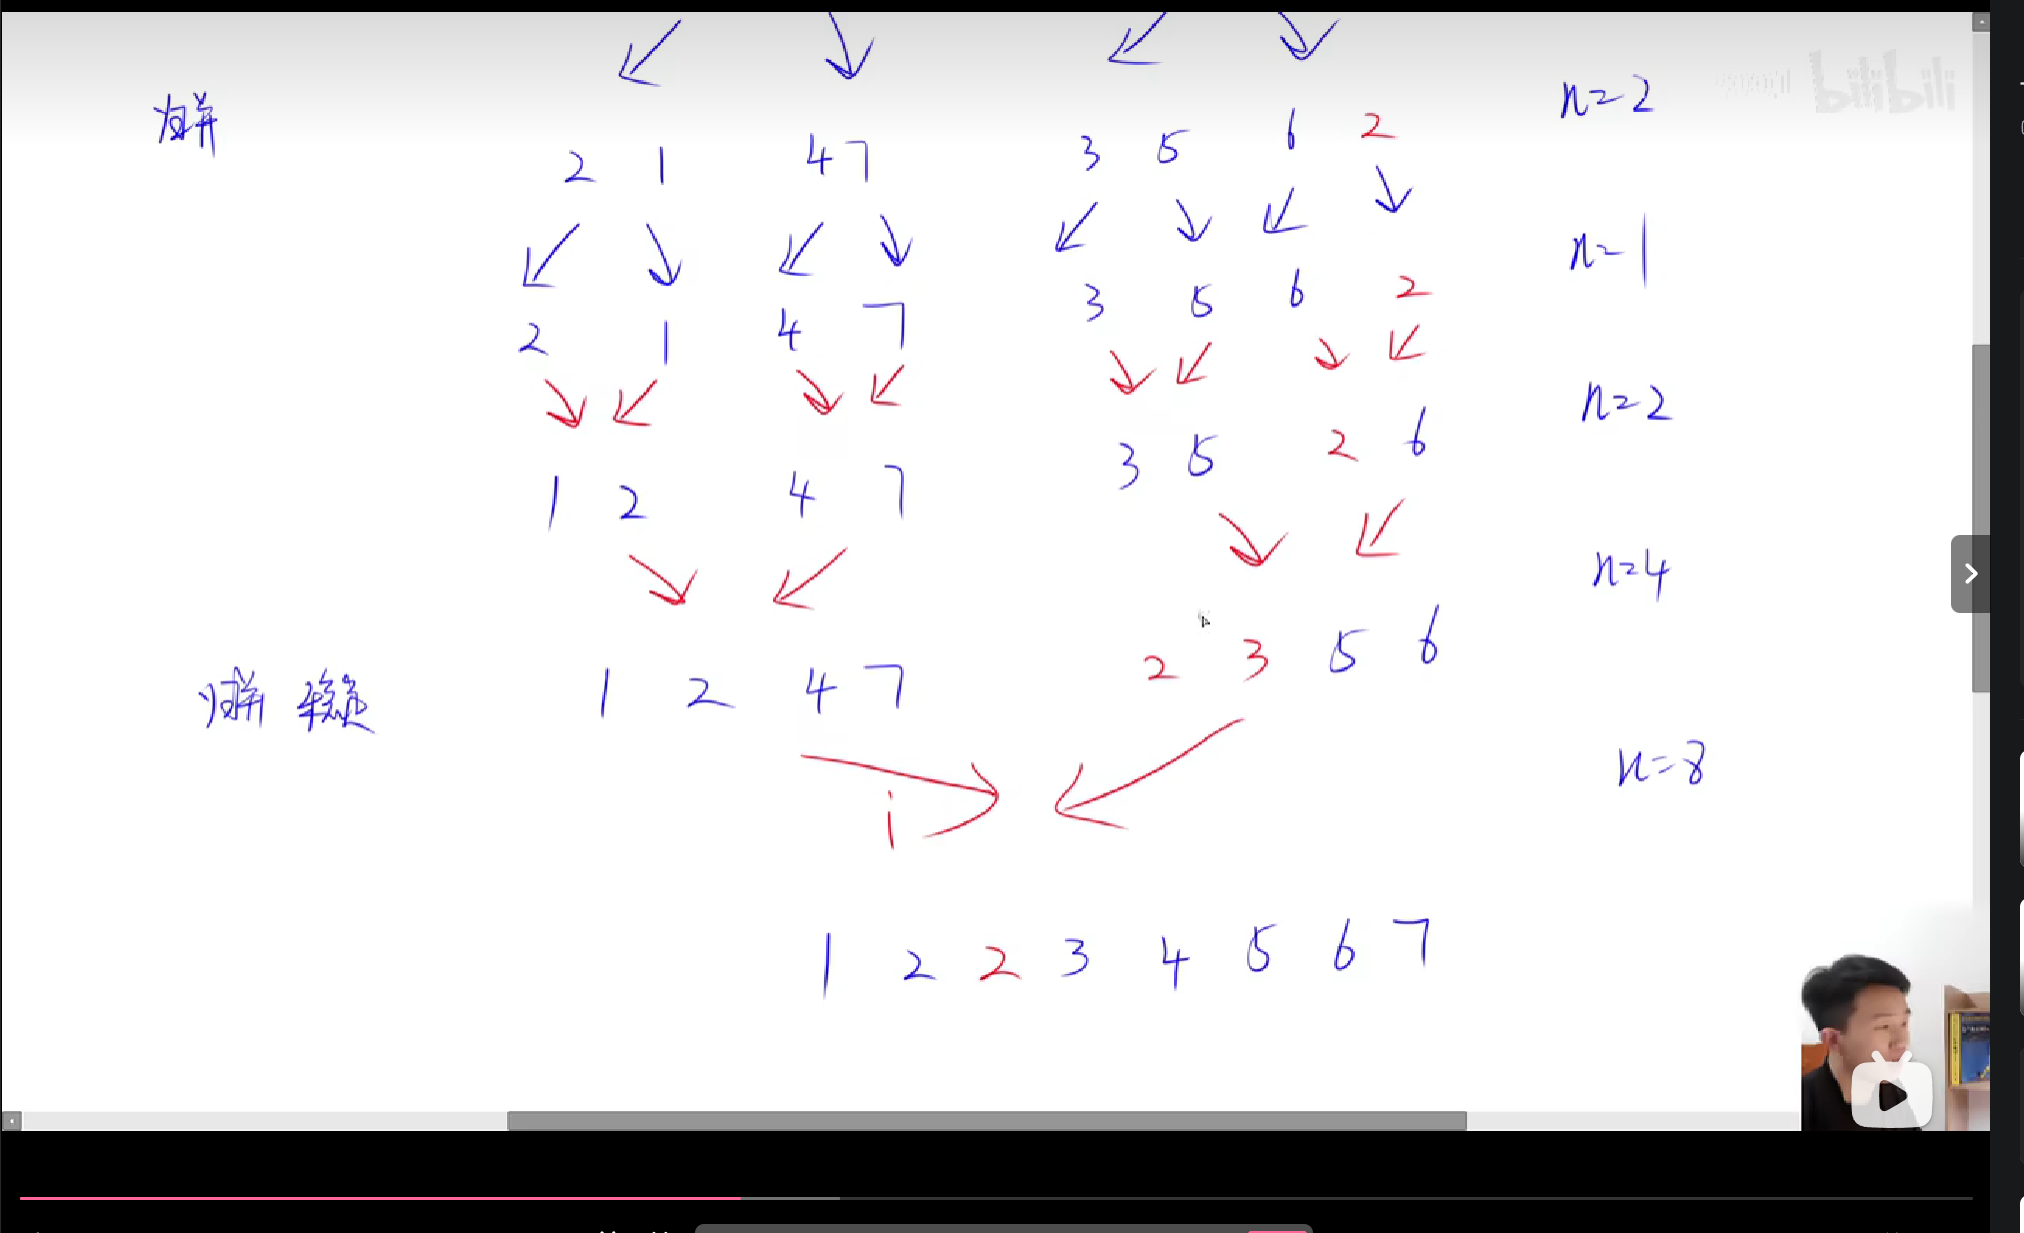 bilibili
n=2
2 1 4 7 3 5 6 2
n=1
2 1 4 7 3 5 6 2
n=2
1 2 4 7 3 5 2 6
n=4
1 2 4 7 2 3 5 6
n=8
i
1 2 2 3 4 5 6 7